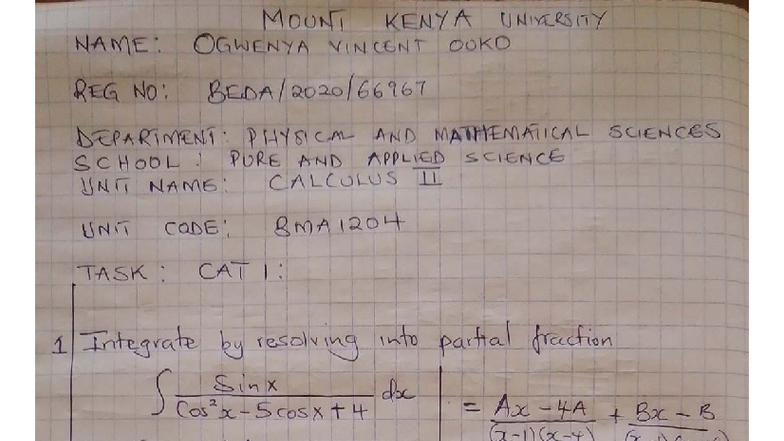 MOUNT KENYA UNIVERSITY
NAME: OGWENYA VINCENT OOKO
REG NO: BEDA/2020/66967
DEPARTMENT: PHYSICAL AND MATHEMATICAL SCIENCES
SCHOOL: PURE AND APPLIED SCIENCE
UNIT NAME: CALCULUS II
UNIT CODE: BMA1204
TASK: CAT 1:
1 Integrate by resolving into partial fraction
∫ Sinx / (Cos²x - 5cosx + 4) dx
= (Ax - 4A) / ((x-1)(x-4)) + (Bx - B) /